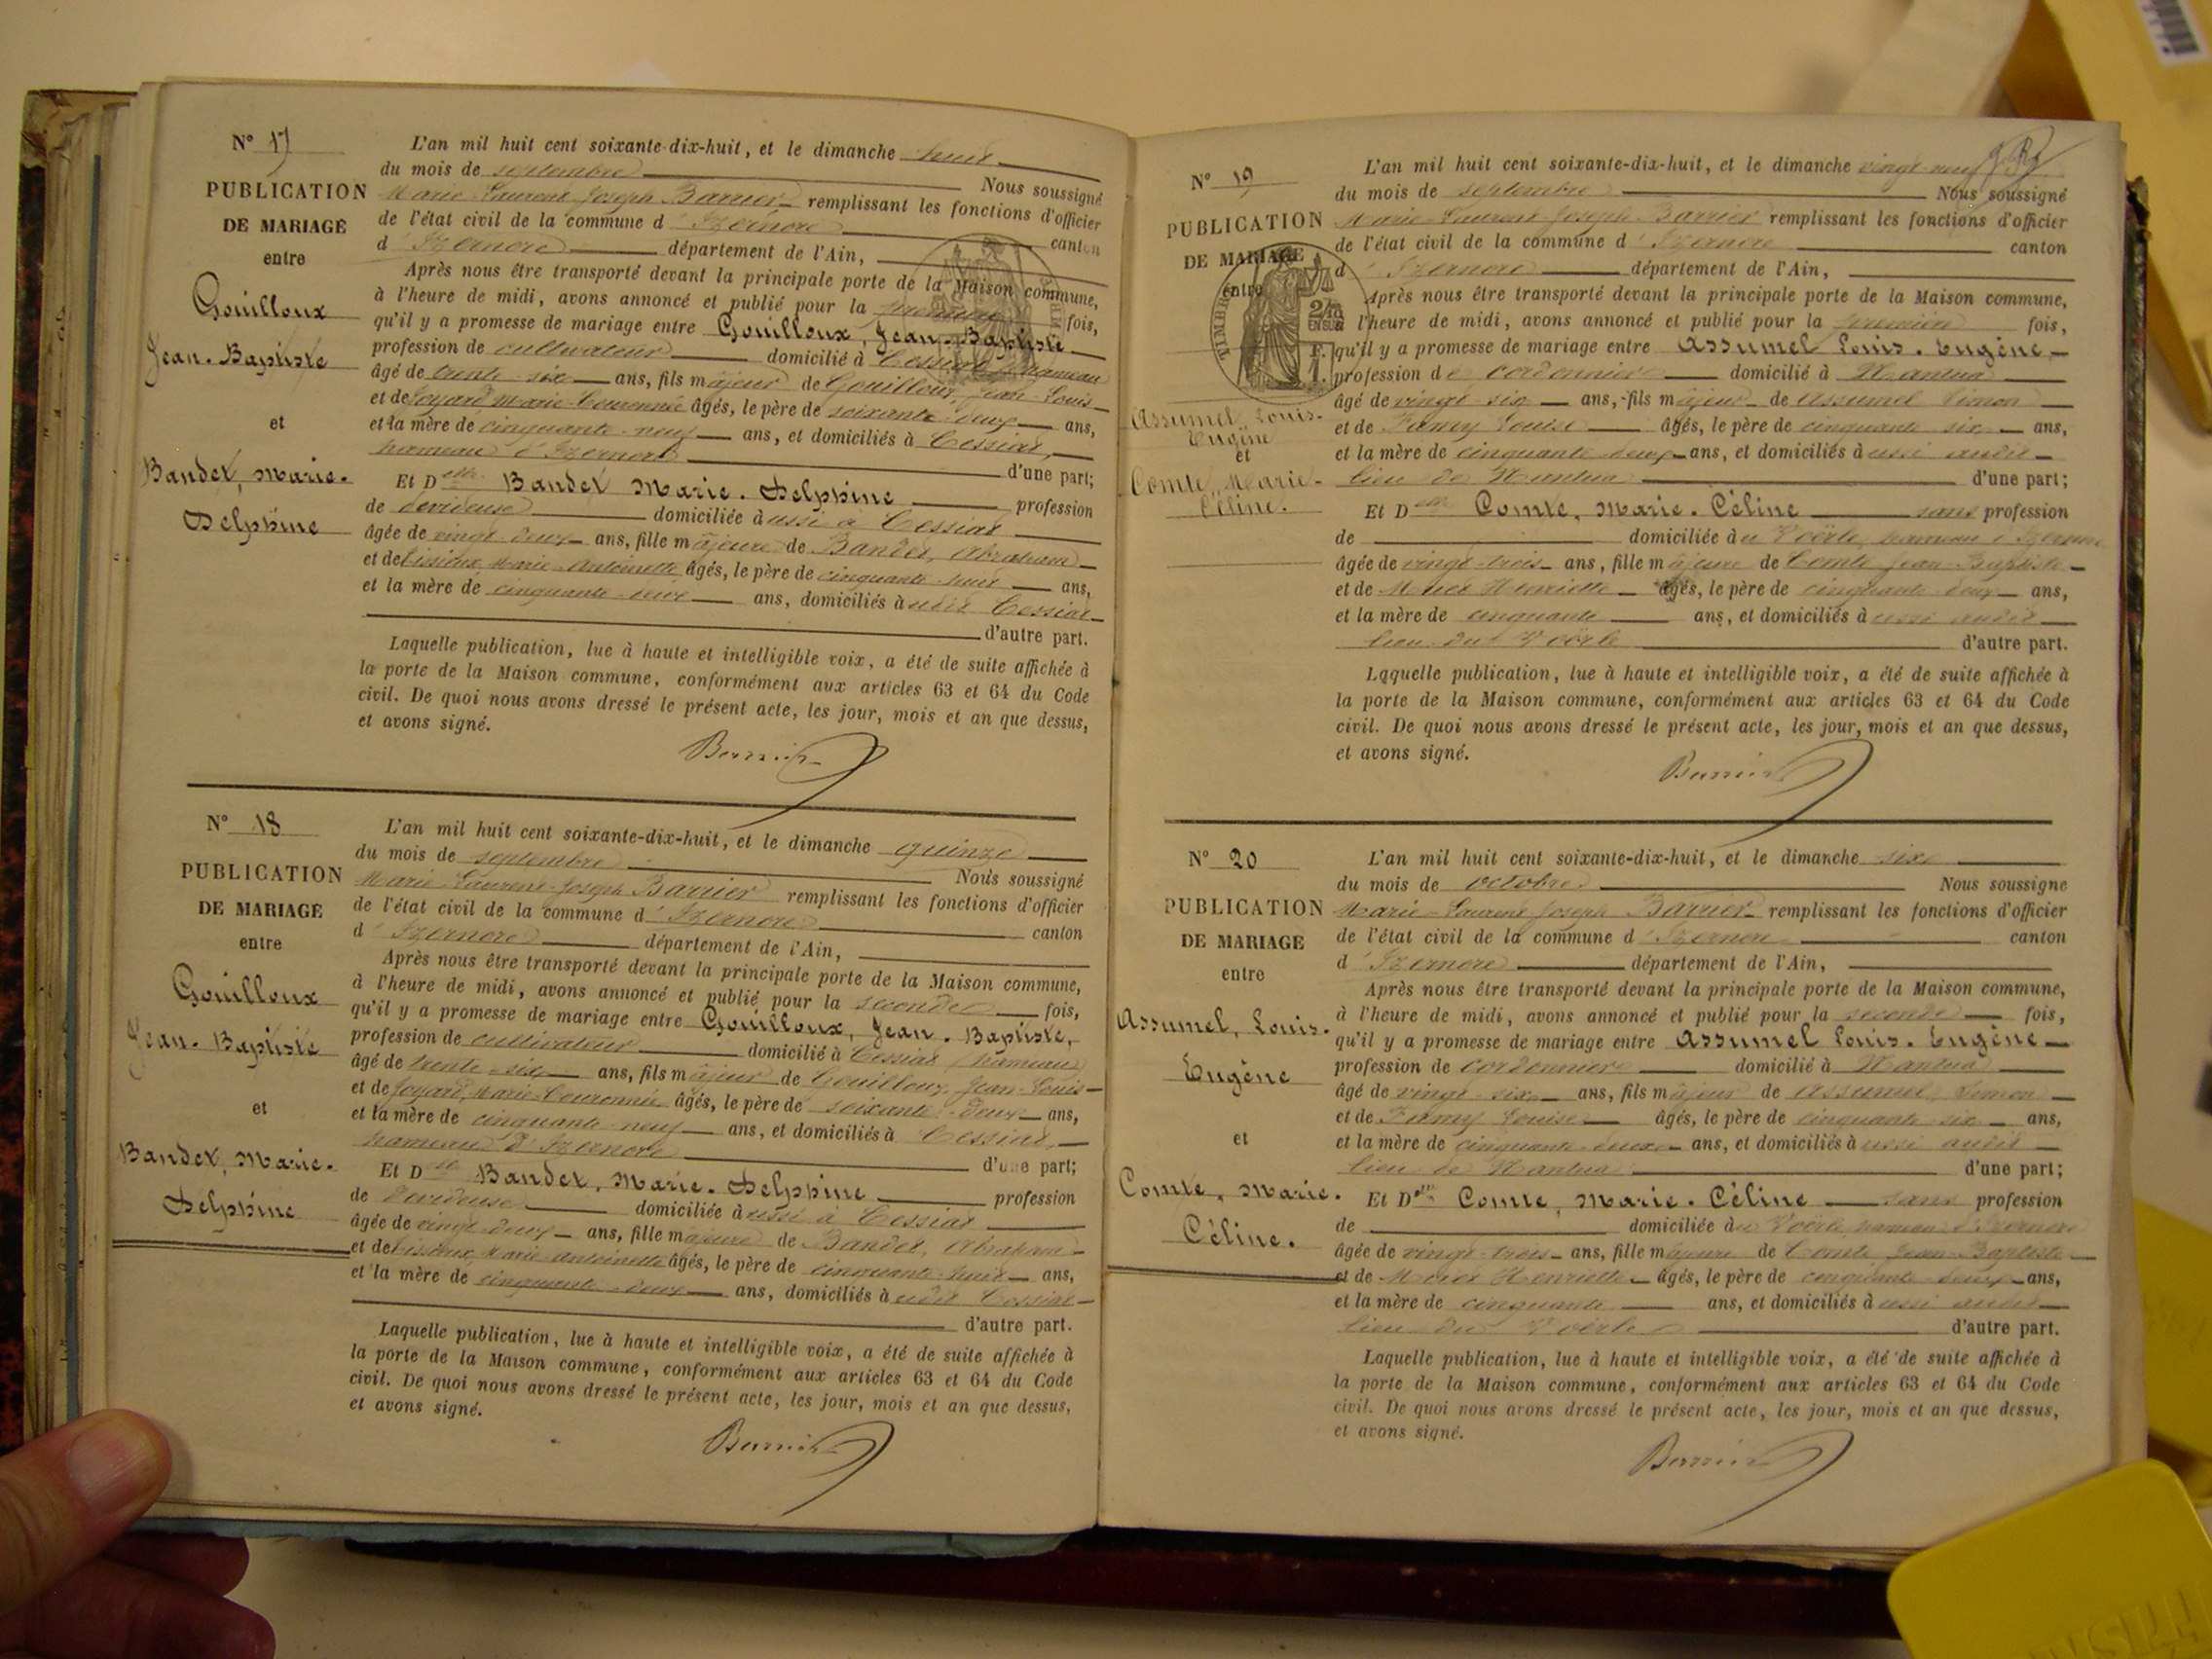 N° 17
PUBLICATION
DE MARIAGE
entre
Gouilloux
Jean-Baptiste
et
Bandet, Marie-
Delphine
L'an mil huit cent soixante-dix-huit, et le dimanche huit
du mois de septembre Nous soussigné
Marie-Laurent-Joseph Barrier remplissant les fonctions d'officier
de l'état civil de la commune d'Izernore canton
d'Izernore département de l'Ain,
Après nous être transporté devant la principale porte de la Maison commune,
à l'heure de midi, avons annoncé et publié pour la première fois,
qu'il y a promesse de mariage entre Gouilloux, Jean-Baptiste
profession de cultivateur domicilié à Cessiat, hameau
âgé de trente-six ans, fils majeur de Gouilloux, Jean-Louis
et de Joyard Marie-Couronnée âgés, le père de soixante-deux ans,
et la mère de cinquante-neuf ans, et domiciliés à Cessiat,
hameau d'Izernore d'une part;
Et Delle Bandet Marie-Delphine profession
de devideuse domiciliée aussi à Cessiat
âgée de vingt-deux ans, fille majeure de Bandet, Abraham
et de Marie-Antoinette âgés, le père de cinquante-huit ans,
et la mère de cinquante-deux ans, domiciliés audit Cessiat
d'autre part.
Laquelle publication, lue à haute et intelligible voix, a été de suite affichée à
la porte de la Maison commune, conformément aux articles 63 et 64 du Code
civil. De quoi nous avons dressé le présent acte, les jour, mois et an que dessus,
et avons signé.
Barrier
N° 18
PUBLICATION
DE MARIAGE
entre
Gouilloux
Jean-Baptiste
et
Bandet, Marie-
Delphine
L'an mil huit cent soixante-dix-huit, et le dimanche quinze
du mois de septembre Nous soussigné
Marie-Laurent-Joseph Barrier remplissant les fonctions d'officier
de l'état civil de la commune d'Izernore canton
d'Izernore département de l'Ain,
Après nous être transporté devant la principale porte de la Maison commune,
à l'heure de midi, avons annoncé et publié pour la seconde fois,
qu'il y a promesse de mariage entre Gouilloux, Jean-Baptiste,
profession de cultivateur domicilié à Cessiat (hameau)
âgé de trente-six ans, fils majeur de Gouilloux, Jean-Louis
et de Joyard, Marie-Couronnée âgés, le père de soixante-deux ans,
et la mère de cinquante-neuf ans, et domiciliés à Cessiat,
hameau d'Izernore d'une part;
Et Delle Bandet, Marie-Delphine profession
de devideuse domiciliée aussi à Cessiat
âgée de vingt-deux ans, fille majeure de Bandet, Abraham
et de Marie-Antoinette âgés, le père de cinquante-huit ans,
et la mère de cinquante-deux ans, domiciliés audit Cessiat
d'autre part.
Laquelle publication, lue à haute et intelligible voix, a été de suite affichée à
la porte de la Maison commune, conformément aux articles 63 et 64 du Code
civil. De quoi nous avons dressé le présent acte, les jour, mois et an que dessus,
et avons signé.
Barrier
N° 19
PUBLICATION
DE MARIAGE
entre
TIMBRE
2/10
EN SUS
Assumel, Louis-
Eugène
et
Comte, Marie-
Céline.
L'an mil huit cent soixante-dix-huit, et le dimanche vingt-neuf
du mois de septembre Nous soussigné
Marie-Laurent-Joseph Barrier remplissant les fonctions d'officier
de l'état civil de la commune d'Izernore canton
d'Izernore département de l'Ain,
Après nous être transporté devant la principale porte de la Maison commune,
à l'heure de midi, avons annoncé et publié pour la première fois,
qu'il y a promesse de mariage entre Assumel Louis-Eugène
profession de cordonnier domicilié à Nantua
âgé de vingt-six ans, fils majeur de Assumel Simon
et de Louise âgés, le père de cinquante-six ans,
et la mère de cinquante-deux ans, et domiciliés aussi audit
lieu de Nantua d'une part;
Et Delle Comte, Marie-Céline sans profession
de domiciliée au Voërle, hameau d'Izernore
âgée de vingt-trois ans, fille majeure de Comte Jean-Baptiste
et de Henriette âgés, le père de cinquante-deux ans,
et la mère de cinquante ans, et domiciliés aussi audit
lieu du Voërle d'autre part.
Laquelle publication, lue à haute et intelligible voix, a été de suite affichée à
la porte de la Maison commune, conformément aux articles 63 et 64 du Code
civil. De quoi nous avons dressé le présent acte, les jour, mois et an que dessus,
et avons signé.
Barrier
N° 20
PUBLICATION
DE MARIAGE
entre
Assumel, Louis-
Eugène
et
Comte, Marie-
Céline.
L'an mil huit cent soixante-dix-huit, et le dimanche six
du mois de octobre Nous soussigné
Marie-Laurent-Joseph Barrier remplissant les fonctions d'officier
de l'état civil de la commune d'Izernore canton
d'Izernore département de l'Ain,
Après nous être transporté devant la principale porte de la Maison commune,
à l'heure de midi, avons annoncé et publié pour la seconde fois,
qu'il y a promesse de mariage entre Assumel Louis-Eugène
profession de cordonnier domicilié à Nantua
âgé de vingt-six ans, fils majeur de Assumel Simon
et de Louise âgés, le père de cinquante-six ans,
et la mère de cinquante-deux ans, et domiciliés aussi audit
lieu de Nantua d'une part;
Et Delle Comte, Marie-Céline sans profession
de domiciliée au Voërle, hameau d'Izernore
âgée de vingt-trois ans, fille majeure de Comte Jean-Baptiste
et de Henriette âgés, le père de cinquante-deux ans,
et la mère de cinquante ans, et domiciliés aussi audit
lieu du Voërle d'autre part.
Laquelle publication, lue à haute et intelligible voix, a été de suite affichée à
la porte de la Maison commune, conformément aux articles 63 et 64 du Code
civil. De quoi nous avons dressé le présent acte, les jour, mois et an que dessus,
et avons signé.
Barrier